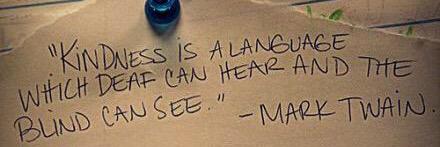 "KINDNESS IS A LANGUAGE
WHICH DEAF CAN HEAR AND THE
BLIND CAN SEE." - MARK TWAIN.